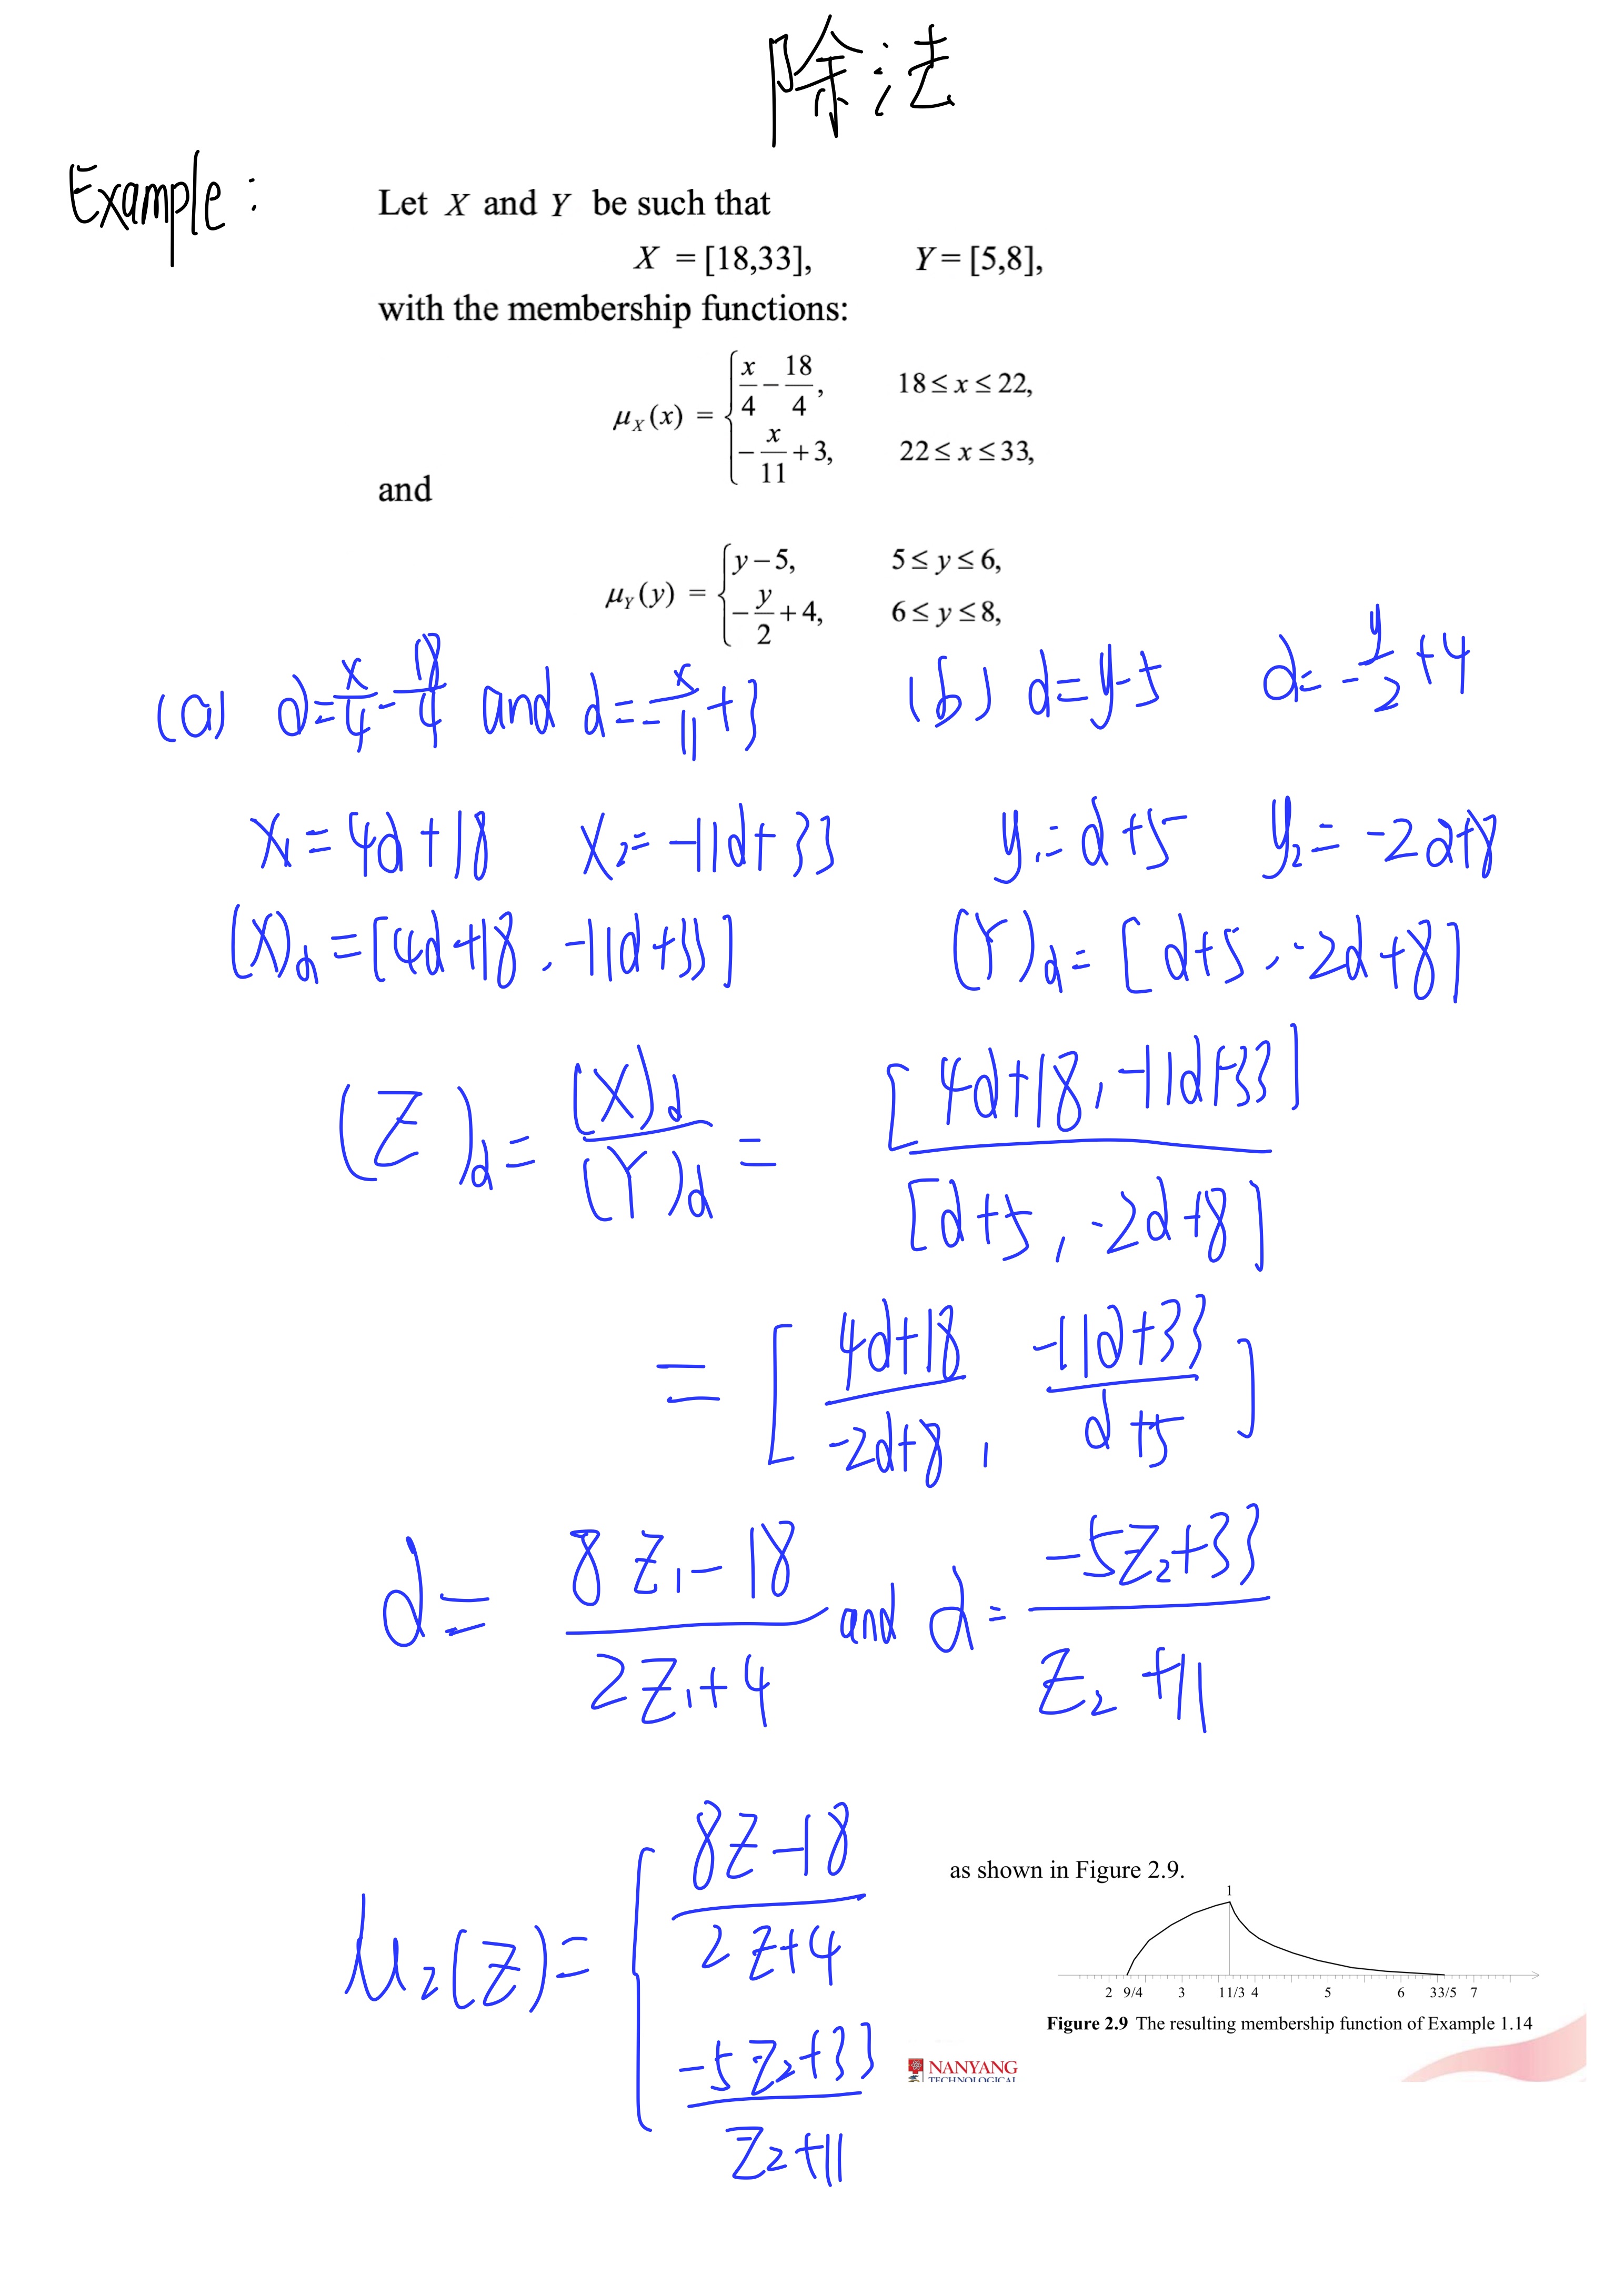 除法
Example:
Let X and Y be such that
X = [18,33], Y = [5,8],
with the membership functions:
μX(x) = { x/4 − 18/4, 18 ≤ x ≤ 22,
−x/11 + 3, 22 ≤ x ≤ 33,
and
μY(y) = { y − 5, 5 ≤ y ≤ 6,
−y/2 + 4, 6 ≤ y ≤ 8,
(a) α = x/4 − 18/4 and α = −x/11 + 3 (b) α = y−5 α = −y/2 + 4
x₁ = 4α+18 x₂ = −11α+33 y₁ = α+5 y₂ = −2α+8
(X)α = [4α+18, −11α+33] (Y)α = [α+5, −2α+8]
(Z)α = (X)α/(Y)α = [4α+18, −11α+33]/[α+5, −2α+8]
= [(4α+18)/(−2α+8), (−11α+33)/(α+5)]
α = (8z₁−18)/(2z₁+4) and α = (−5z₂+33)/(z₂+11)
μz(z) = { (8z−18)/(2z+4)
(−5z₂+33)/(z₂+11)
as shown in Figure 2.9.
1
2 9/4 3 11/3 4 5 6 33/5 7
Figure 2.9 The resulting membership function of Example 1.14
NANYANG
TECHNOLOGICAL